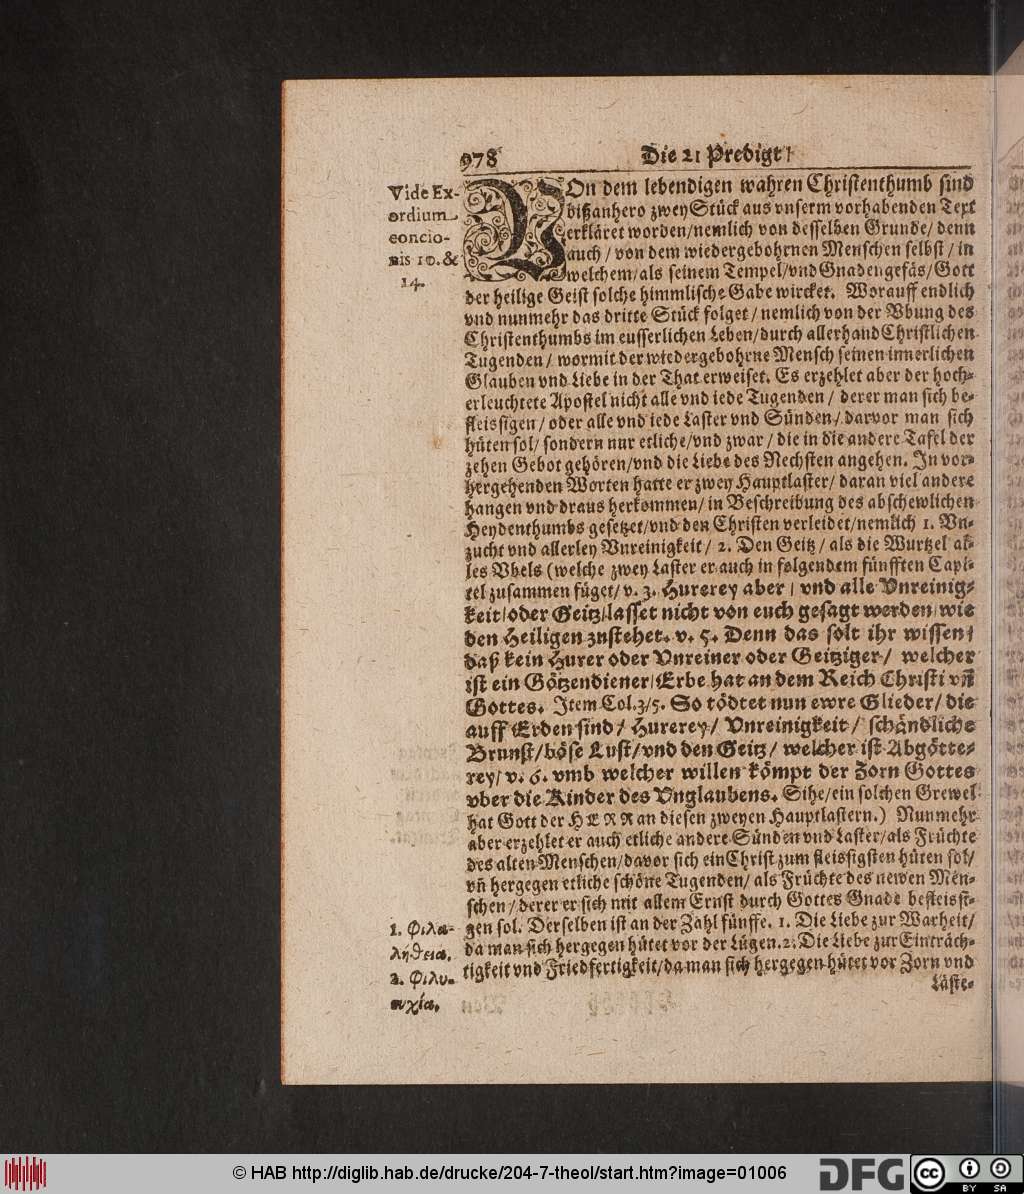 978
Die 21 Predigt/
Vide Ex-
ordium
concio-
nis 10. &
14.
VOn dem lebendigen wahren Christenthumb sind
bißanhero zwey Stück aus vnserm vorhabenden Text
erkläret worden/nemlich von desselben Grunde/ denn
auch / von dem wiedergebohrnen Menschen selbst / in
welchem/als seinem Tempel/vnd Gnadengefäs/ Gott
der heilige Geist solche himmlische Gabe wircket. Worauff endlich
vnd nunmehr das dritte Stück folget / nemlich von der Vbung des
Christenthumbs im eusserlichen Leben/durch allerhand Christlichen
Tugenden / wormit der wiedergebohrne Mensch seinen innerlichen
Glauben vnd Liebe in der That erweiset. Es erzehlet aber der hoch-
erleuchtete Apostel nicht alle vnd iede Tugenden / derer man sich be-
fleissigen / oder alle vnd iede Laster vnd Sünden / darvor man sich
hüten sol/ sondern nur etliche/vnd zwar / die in die andere Tafel der
zehen Gebot gehören/vnd die Liebe des Nechsten angehen. In vor-
hergehenden Worten hatte er zwey Hauptlaster/ daran viel andere
hangen vnd draus herkommen/ in Beschreibung des abschewlichen
Heydenthumbs gesetzet/vnd den Christen verleidet/nemlich 1. Vn-
zucht vnd allerley Vnreinigkeit / 2. Den Geitz / als die Wurtzel al-
les Vbels (welche zwey Laster er auch in folgendem fünfften Capi-
tel zusammen füget/ v. 3. Hurerey aber / vnd alle Vnreinig-
keit/oder Geitz/lasset nicht von euch gesagt werden/ wie
den Heiligen zustehet. v. 5. Denn das solt ihr wissen/
daß kein Hurer oder Vnreiner oder Geitziger/ welcher
ist ein Götzendiener/Erbe hat an dem Reich Christi vñ
Gottes. Item Col.3/5. So tödtet nun ewre Glieder/ die
auff Erden sind / Hurerey / Vnreinigkeit / schändliche
Brunst/böse Lust/vnd den Geitz / welcher ist Abgötte-
rey/ v. 6. vmb welcher willen kömpt der Zorn Gottes
vber die Kinder des Vnglaubens. Sihe/ein solchen Grewel
hat Gott der HERR an diesen zweyen Hauptlastern.) Nunmehr
aber erzehlet er auch etliche andere Sünden vnd Laster/als Früchte
des alten Menschen/davor sich ein Christ zum fleissigsten hüten sol/
vñ hergegen etliche schöne Tugenden/ als Früchte des newen Men-
schen / derer er sich mit allem Ernst durch Gottes Gnade befleissi-
gen sol. Derselben ist an der Zahl fünffe. 1. Die Liebe zur Warheit/
da man sich hergegen hütet vor der Lügen. 2. Die Liebe zur Einträch-
tigkeit vnd Friedfertigkeit/da man sich hergegen hütet vor Zorn vnd
Läste-
1. Φιλα-
λήθεια.
2. Φιλυ-
συχία.
© HAB http://diglib.hab.de/drucke/204-7-theol/start.htm?image=01006
DFG
cc
BY SA